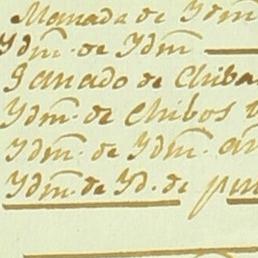 Manada de Ydm̃
Ydm̃. de Ydm̃
Ganado de Chiba
Ydm̃. de Chibos
Ydm̃. de Ydm̃. an
Ydm̃. de Yd. de